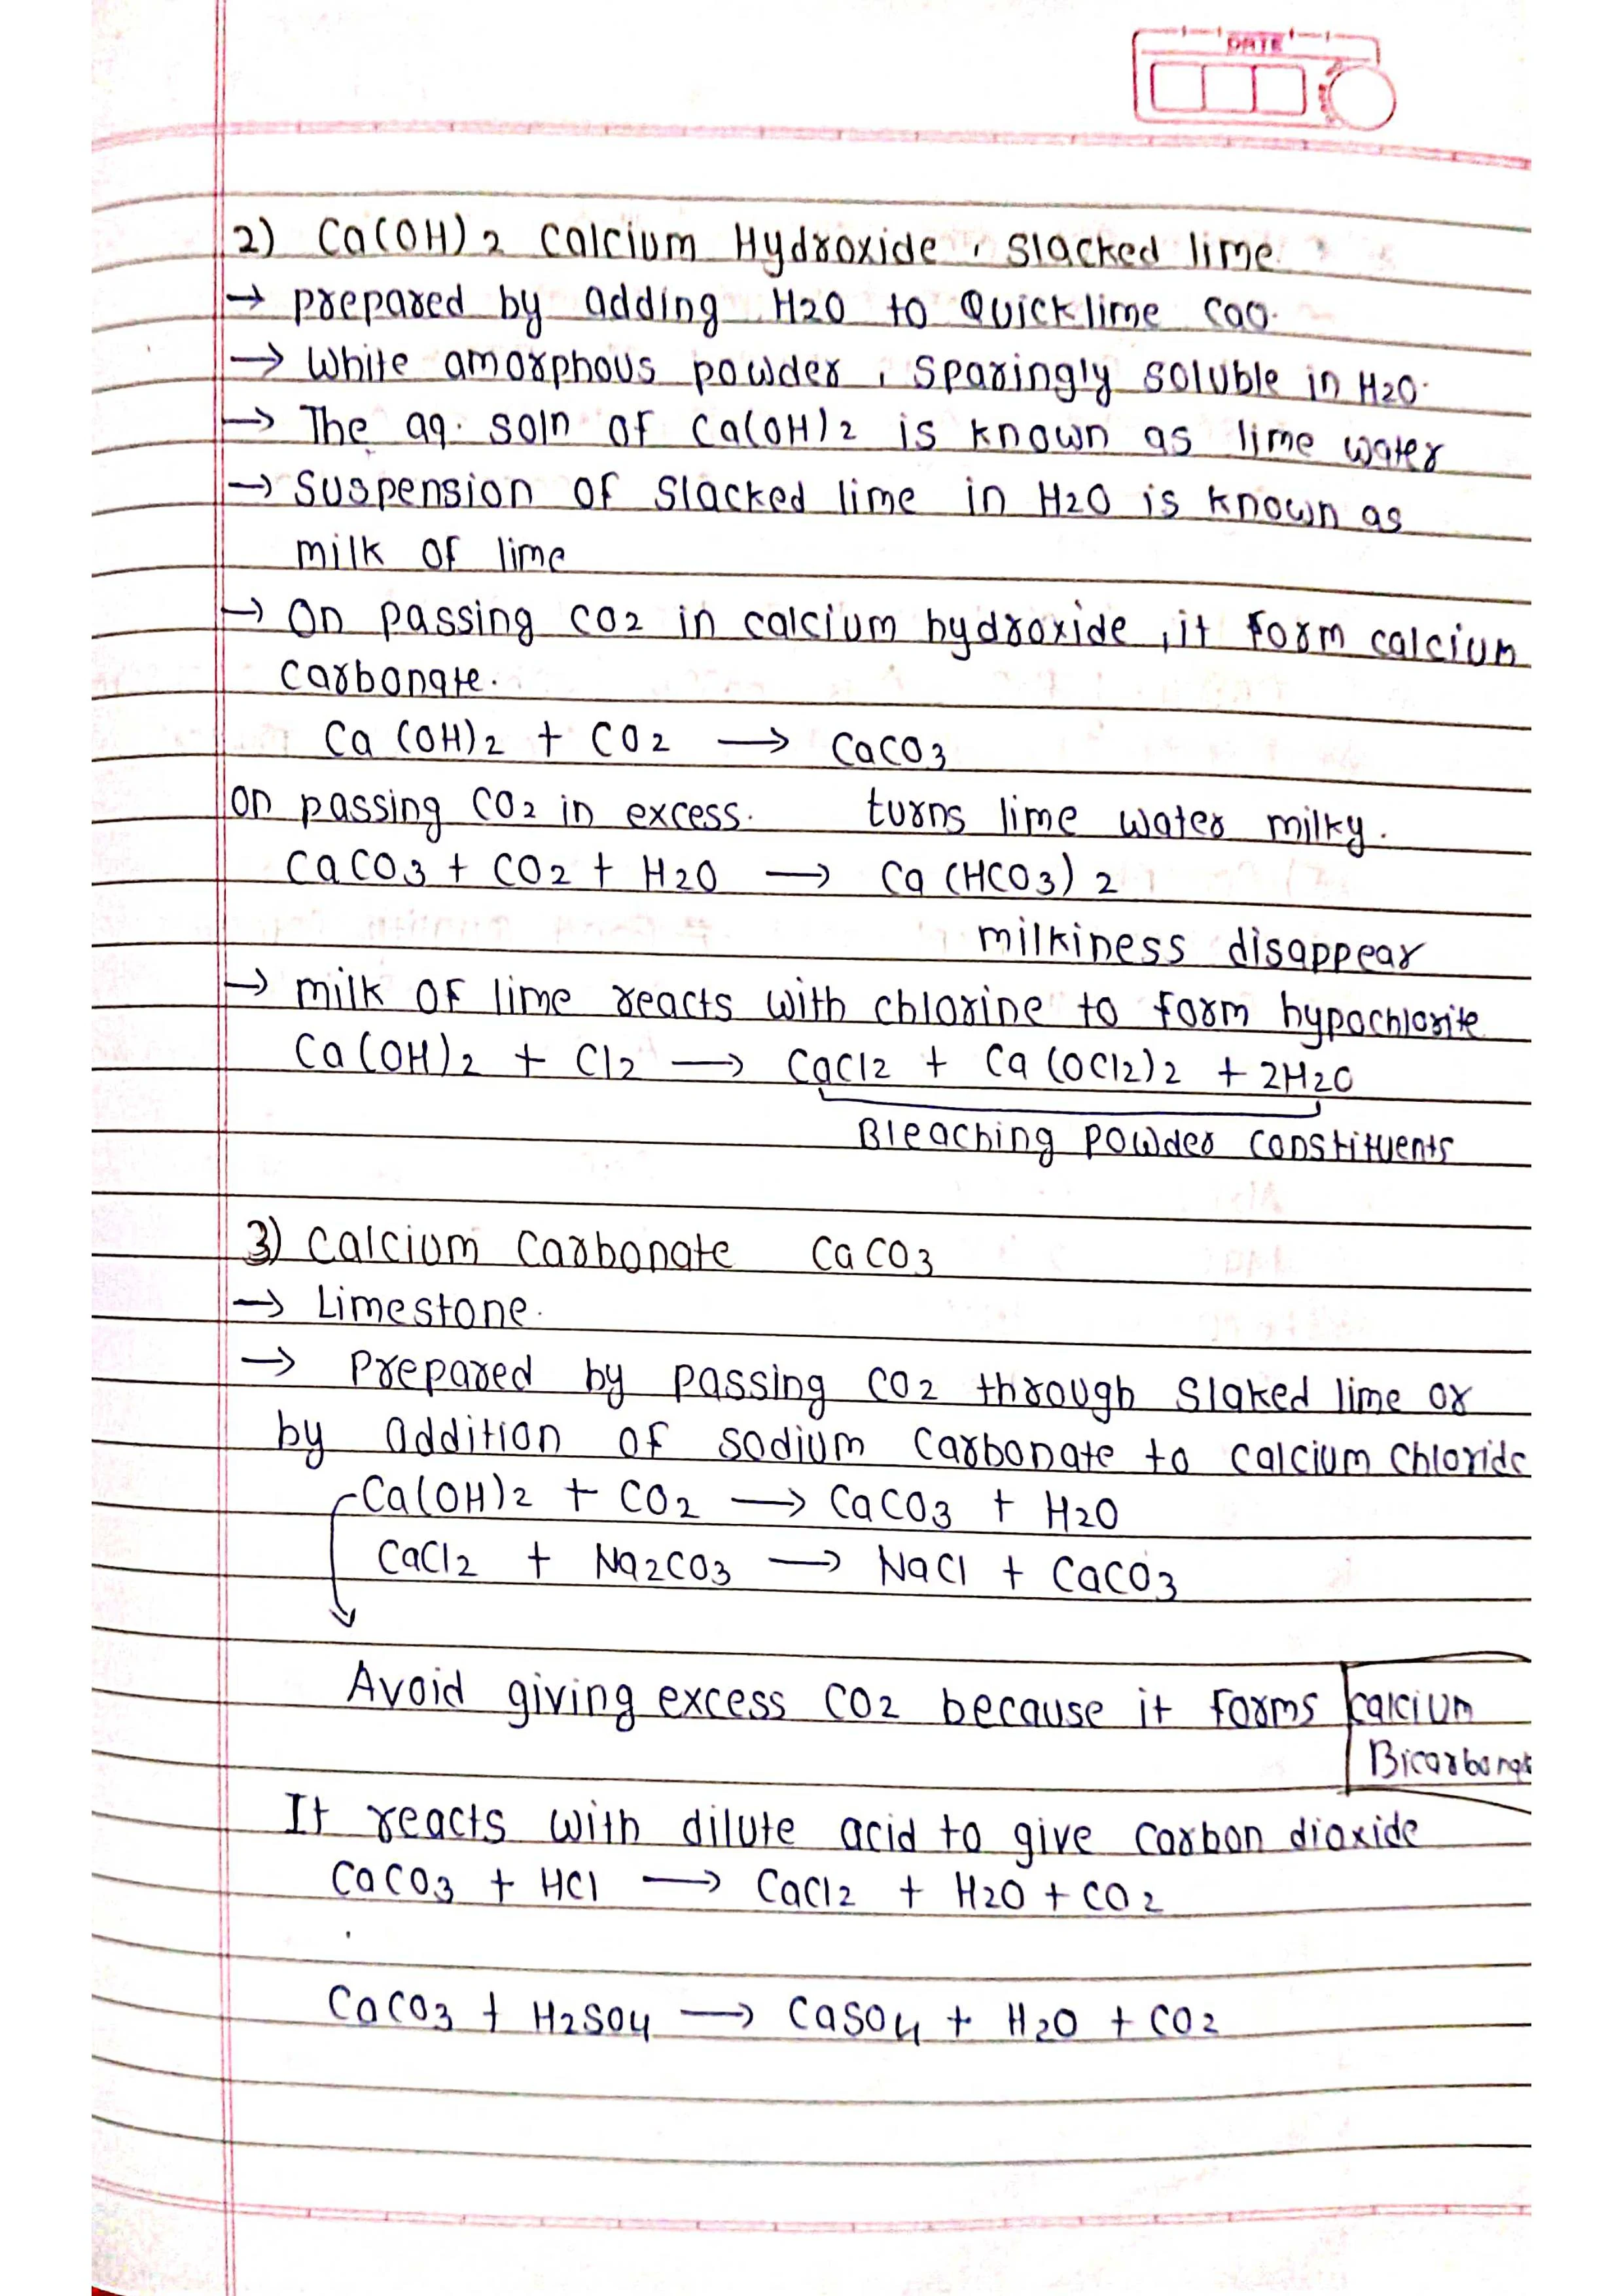 DATE
2) Ca(OH)2 Calcium Hydroxide, Slacked lime
→ prepared by adding H2O to Quicklime CaO.
→ White amorphous powder, Sparingly soluble in H2O.
→ The aq. soln of Ca(OH)2 is known as lime water
→ Suspension of Slacked lime in H2O is known as
milk of lime
→ On passing CO2 in calcium hydroxide, it form calcium
carbonate.
Ca(OH)2 + CO2 → CaCO3
on passing CO2 in excess. turns lime water milky.
CaCO3 + CO2 + H2O → Ca(HCO3)2
milkiness disappear
→ milk of lime reacts with chlorine to form hypochlorite
Ca(OH)2 + Cl2 → CaCl2 + Ca(OCl2)2 + 2H2O
Bleaching powder constituents
3) Calcium Carbonate CaCO3
→ Limestone.
→ Prepared by passing CO2 through Slaked lime or
by addition of sodium carbonate to calcium chloride
Ca(OH)2 + CO2 → CaCO3 + H2O
CaCl2 + Na2CO3 → NaCl + CaCO3
Avoid giving excess CO2 because it forms calcium
Bicarbonate
It reacts with dilute acid to give carbon dioxide
CaCO3 + HCl → CaCl2 + H2O + CO2
CaCO3 + H2SO4 → CaSO4 + H2O + CO2